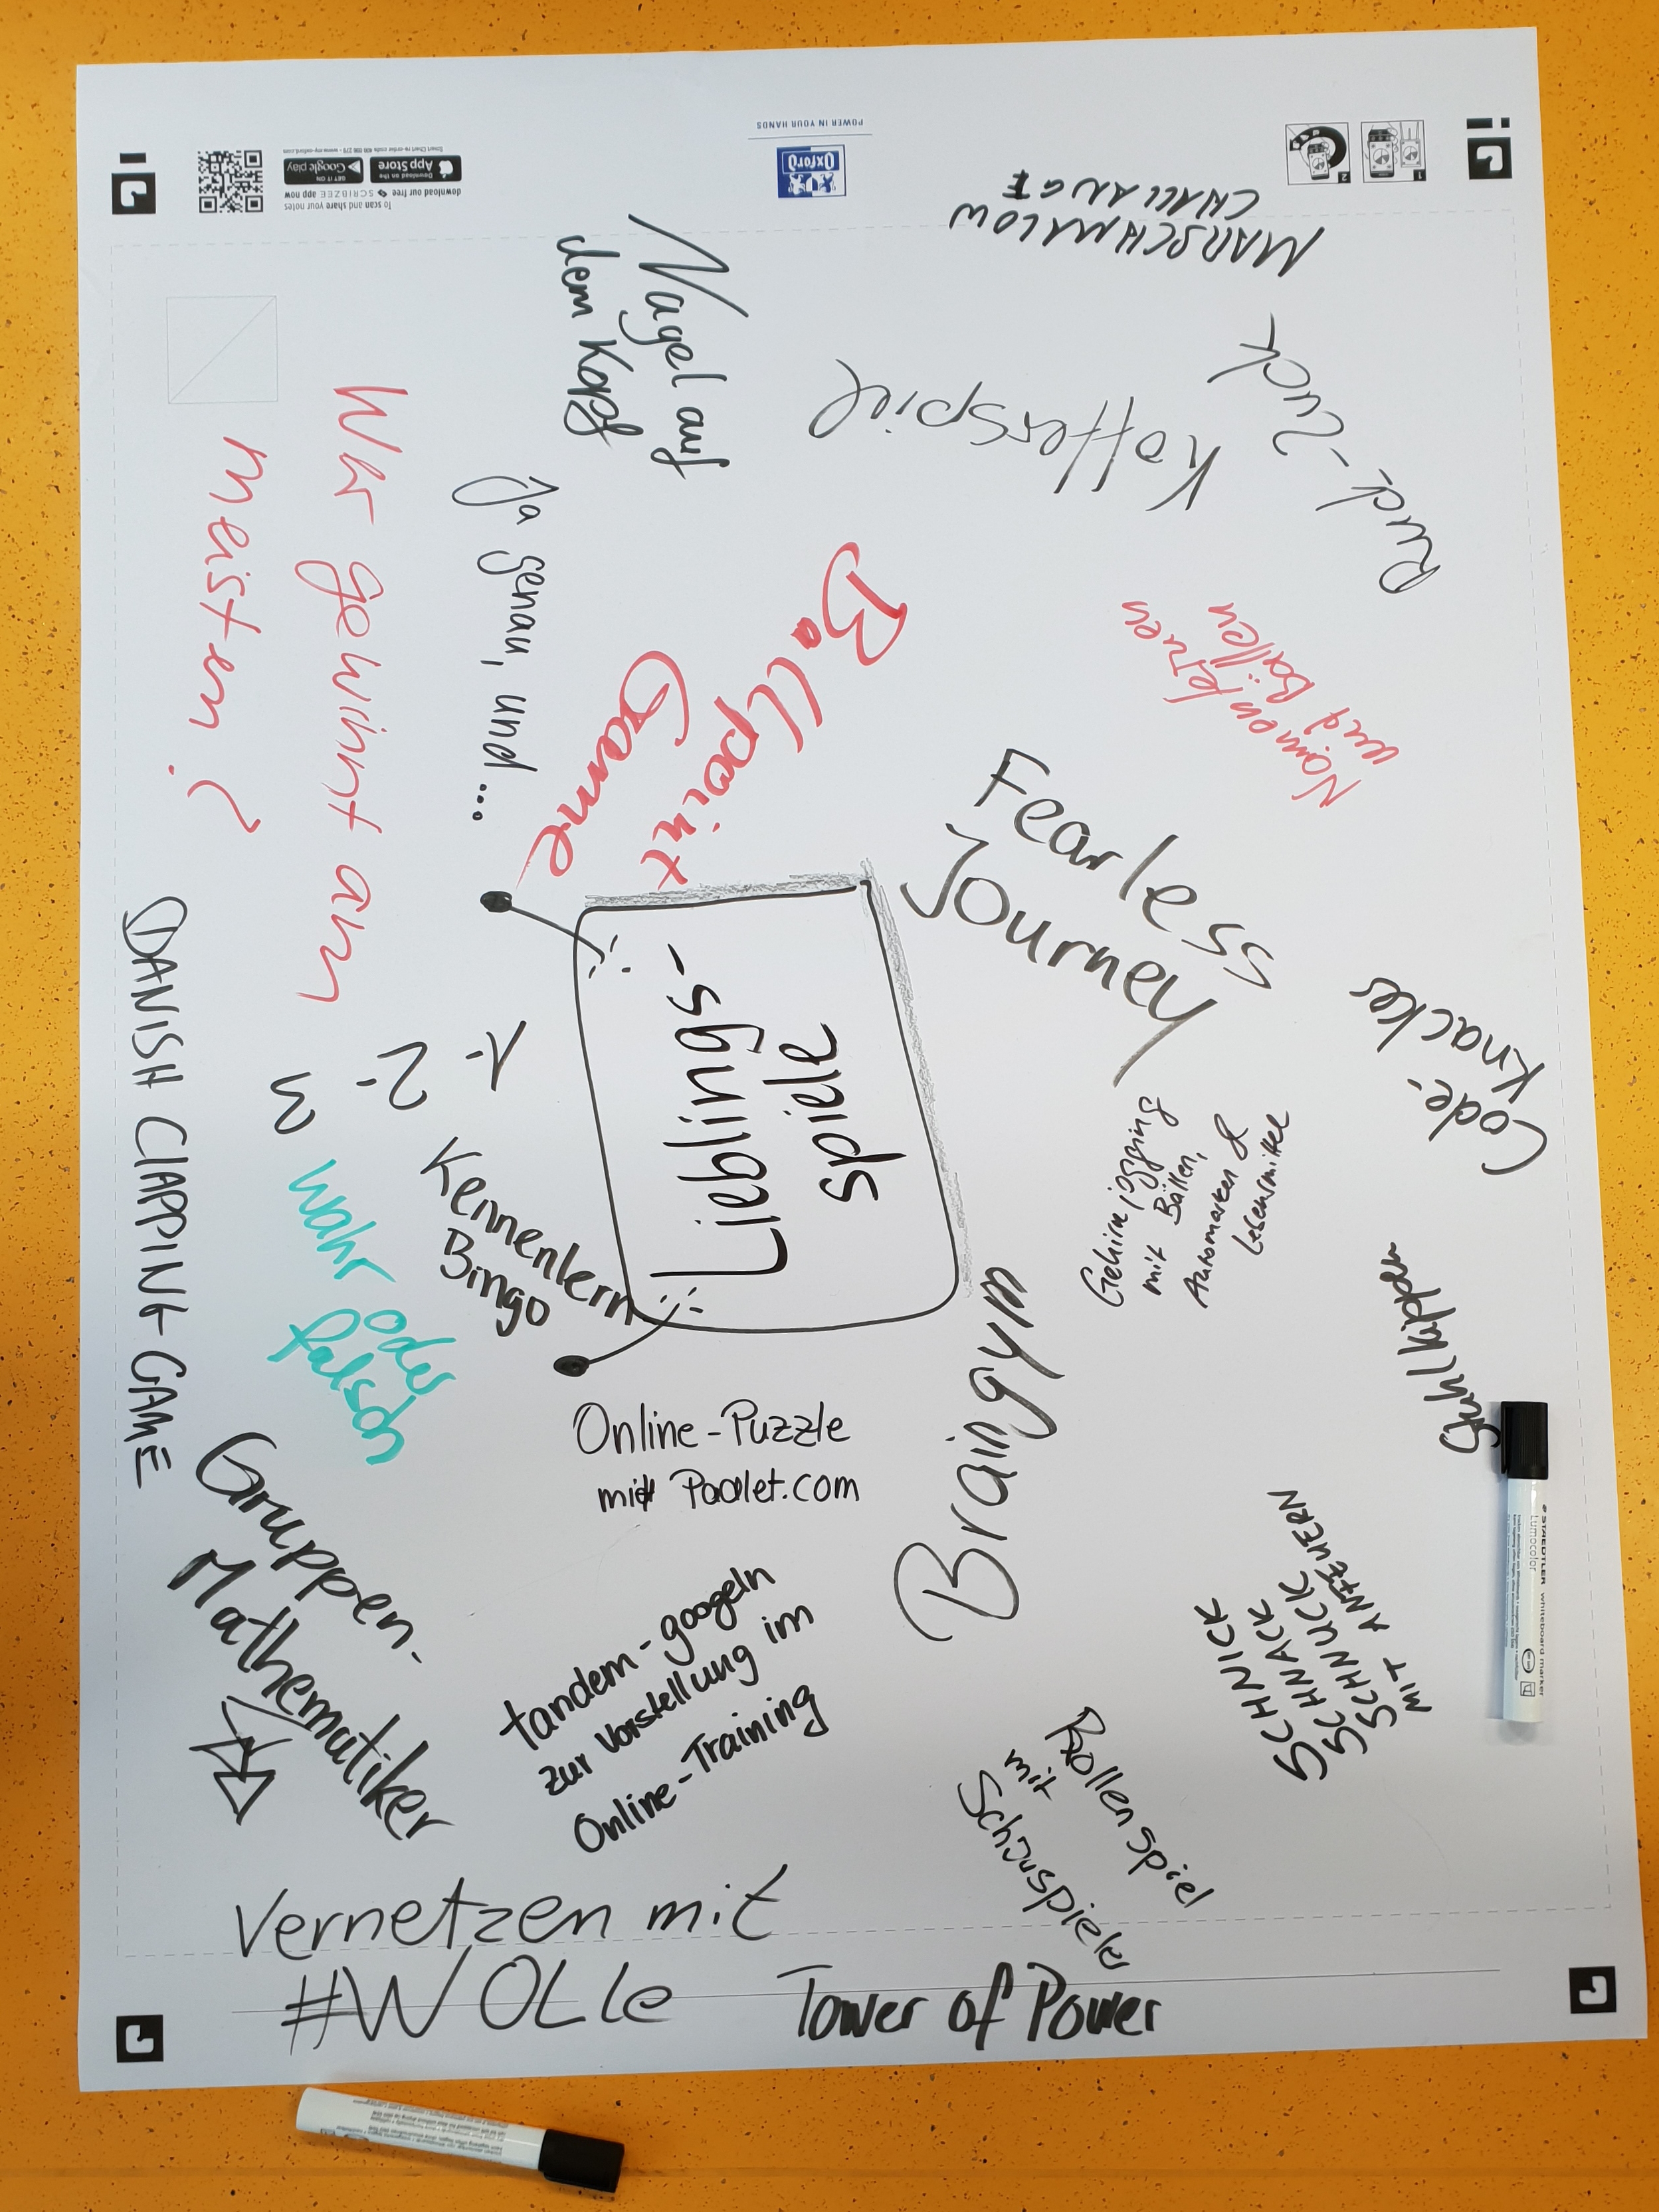 Lieblings-
spiele
MARSCHMALOW
CHALLANGE
Nagel auf
dem Kopf
Kofferspiel
Ruck-Zuck
Namen lernen
mit Bällen
Ja genau, und...
Wer gewinnt am
meisten?
Ballpoint
Game
Fearless
Journey
Code-
Knacker
Gehirnjogging
mit Bällen,
Automarken &
Lebensmittel
Stuhlkippen
DANISH CLAPPING-GAME
1
2
3
Kennenlern
Bingo
wahr oder
falsch
Online-Puzzle
mit Padlet.com
Braingym
SCHNICK
SCHNACK
SCHNUCK
MIT ANFEUERN
Gruppen-
Mathematiker
tandem-googeln
zur Vorstellung im
Online-Training
Rollenspiel
mit
Schauspieler
Vernetzen mit
#WOLLe
Tower of Power
Oxford
POWER IN YOUR HANDS
To scan and share your notes
download our free SCRIBZEE app now
Download on the
App Store
GET IT ON
Google play
1
2
STAEDTLER whiteboard marker
Lumocolor